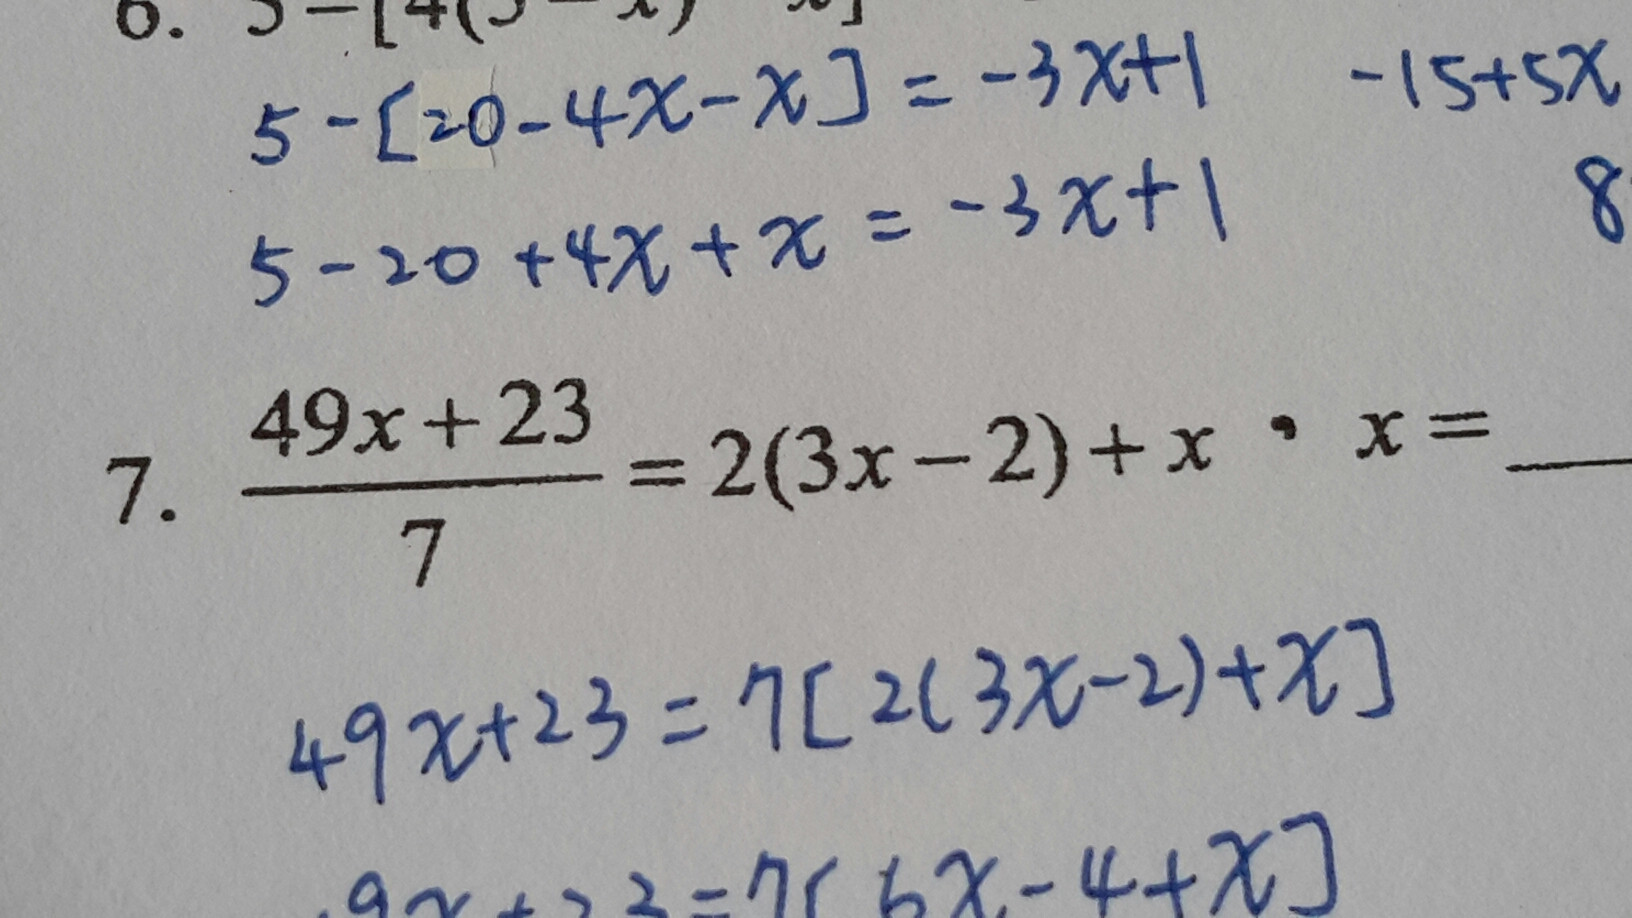 6. 5-[4(5-x)-x]
5-[20-4x-x]=-3x+1 -15+5x
5-20+4x+x=-3x+1 8
7. \frac{49x+23}{7}=2(3x-2)+x , x=__
49x+23=7[2(3x-2)+x]
9x+23=7[6x-4+x]